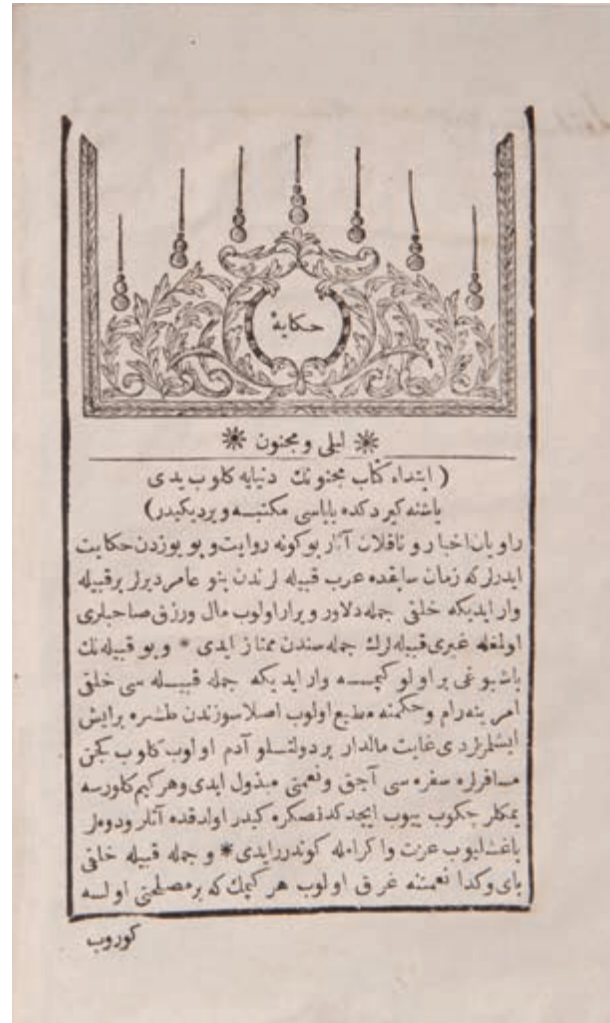 حكایهٔ
لیلی و مجنون
( ابتداء كتاب مجنونك دنیایه كلوب یدی
یاشنه كیردكده باباسی مكتبه ویردیكیدر)
راویان اخبار و ناقلان آثار بوكونه روایت و بو یوزدن حكایت
ایدرلركه زمان سابقده عرب قبیله لرندن بنو عامر دیرلر برقبیله
وار ایدیكه خلقی جمله دلاور و یرار اولوب مال ورزق صاحبلری
اولمغله غیری قبیله لرك جمله سندن ممتاز ایدی * و بو قبیله نك
باشبوغی بر اولو كیمسه وار ایدیكه جمله قبیله سی خلقی
امرینه رام و حكمنه مطیع اولوب اصلا سوزندن طشره برایش
ایشلمزلردی غایت مالدار بر دولتلو آدم اولوب كلوب كچن
مسافرلره سفره سی آچق و نعمتی مبذول ایدی وهركیم كلورسه
یمكلر چكوب ییوب ایچدكدنصكره كیدر اولدقده آنلر ودوه لر
باغشلیوب عزت واكرامله كوندررایدی * و جمله قبیله خلقی
بای وكدا نعمتنه غرق اولوب هر كیمك كه بر مصلحتی اولسه
كوروب